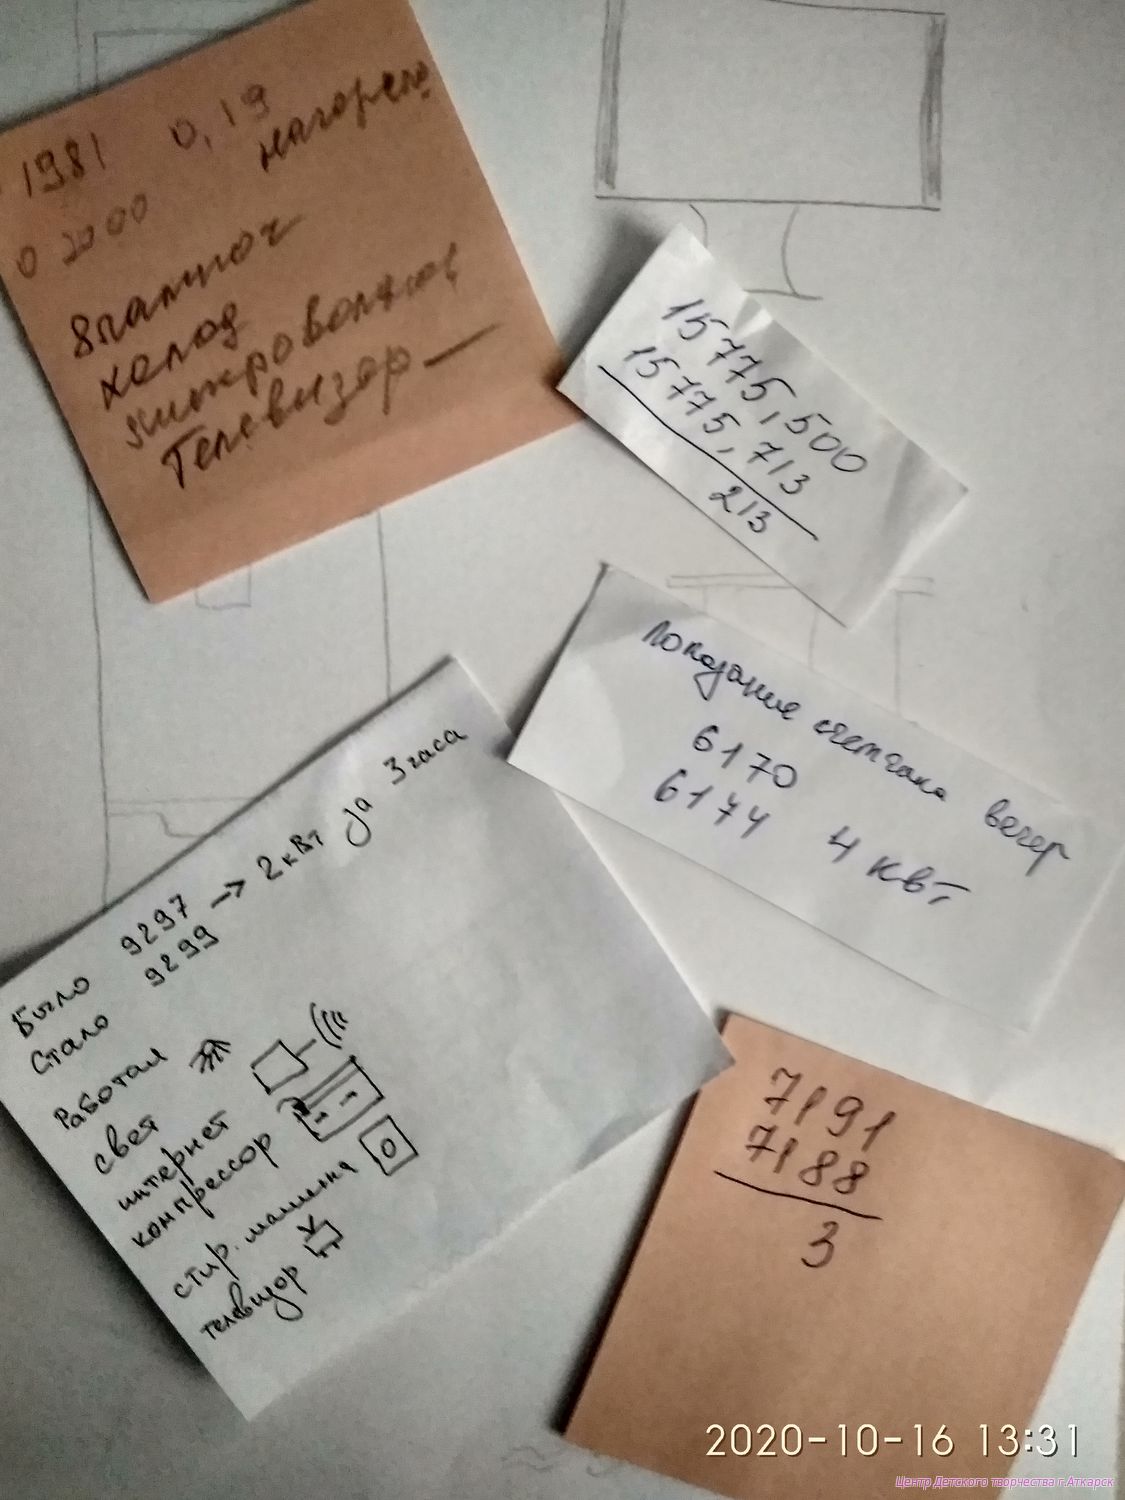 1981 0,19
нагорело
02000
8 лампоч
холод
микроволнов
Телевизор —
15775,500
15775,713
213
Показание счетчика вечер
6170
6174 4 квт
Было 9297
Стало 9299 → 2 кВт за 3 часа
Работал
свет
интернет
компрессор
стир. машина
телевизор
7191
7188
3
2020-10-16 13:31
Центр Детского творчества г.Аткарск